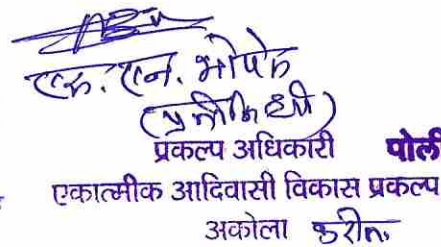 एस. एन. भोपळे
(प्रतिनिधी)
प्रकल्प अधिकारी पोली
एकात्मीक आदिवासी विकास प्रकल्प
अकोला करीता